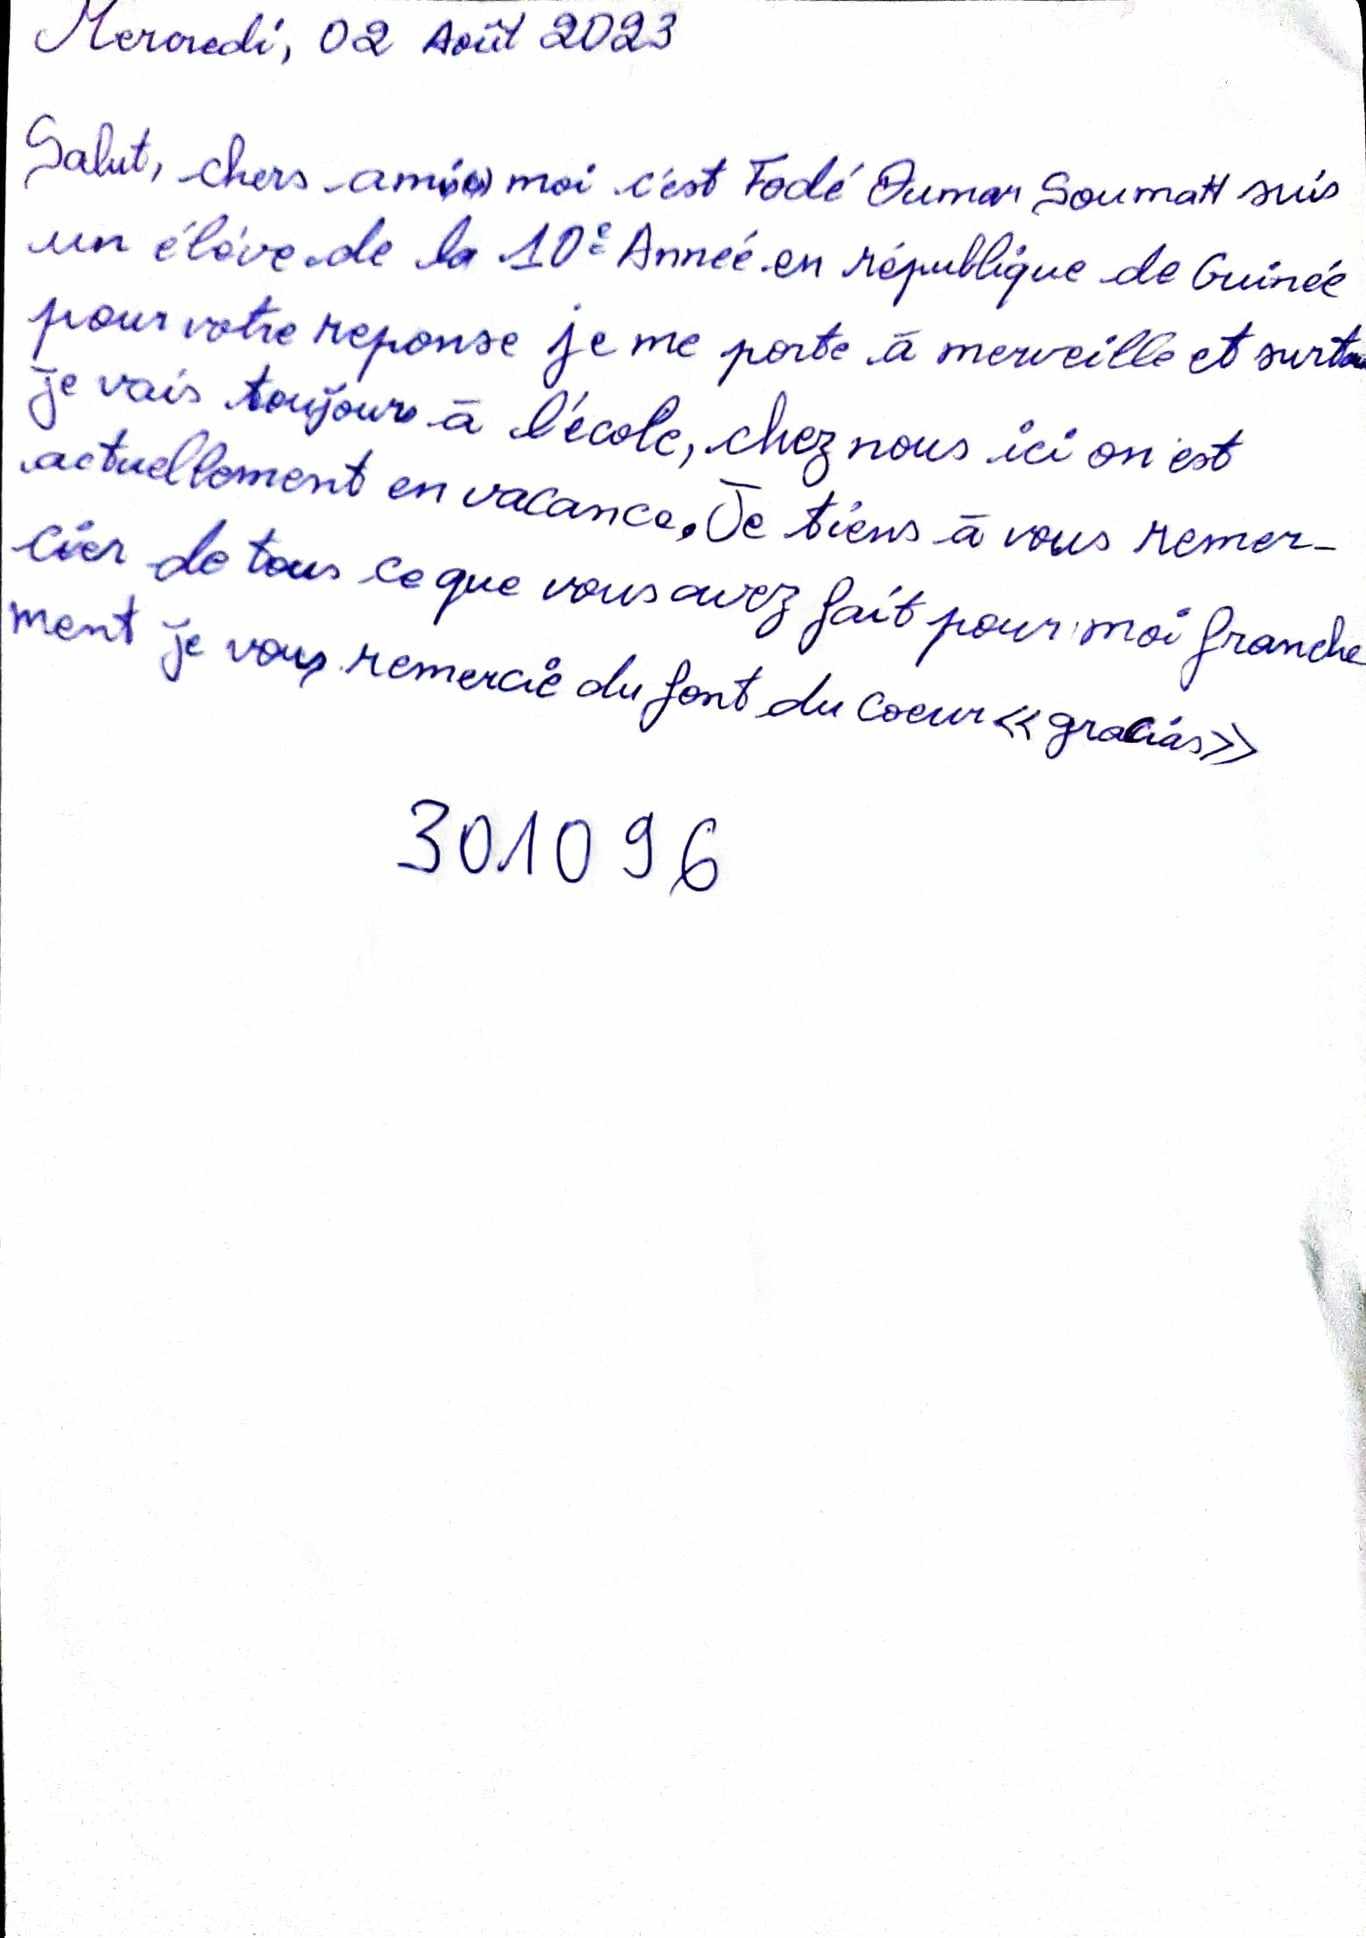 Mercredi, 02 Août 2023
Salut, chers ami(e) moi c'est Fodé Oumar Soumah suis
un élève de la 10e Année en république de Guinée
pour votre reponse je me porte à merveille et surtou
je vais toujours à l'école, chez nous ici on est
actuellement en vacance. Je tiens à vous remer-
cier de tous ce que vous avez fait pour moi franche
ment je vous remercie du font du coeur << gracias >>
301096